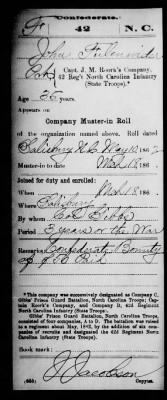 Confederate.
F 42 N. C.
John Fulenwider
Capt. J. M. Roark's Company,
42 Reg't North Carolina Infantry
(State Troops).*
Age 35 years.
Appears on
Company Muster-in Roll
of the organization named above. Roll dated
Salisbury N.C. May 10, 186
Muster-in to date March 18, 186
Joined for duty and enrolled:
When March 18, 186
Where Salisbury
By whom Gibbs
Period 3 years or the War
Remarks: Confederate Bounty
of $50 Paid
*This company was successively designated as Company C,
Gibbs' Prison Guard Battalion, North Carolina Troops; Cap-
tain Roark's Company, and Company B, 42d Regiment
North Carolina Infantry (State Troops).
Gibbs' Prison Guard Battalion, North Carolina Troops, con-
sisted of four companies, A to D. The battalion was raised to
a regiment about May, 1862, by the addition of six com-
panies of recruits and designated the 42d Regiment North
Carolina Infantry (State Troops).
Book mark:
J Jacobson
Copyist.